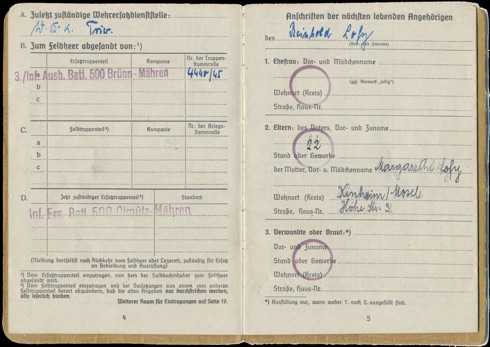 A. Zuletzt zuständige Wehrersatzdienststelle:
W. B. K. Trier.
B. Zum Feldheer abgesandt von:¹)
Ersatztruppenteil
Kompanie
Nr. der Truppen-
stammrolle
a
3./Inf. Ausb. Batl. 500 Brünn-Mähren
4448/45
b
c
C.
Feldtruppenteil²)
Kompanie
Nr. der Kriegs-
stammrolle
a
b
c
D.
Jetzt zuständiger Ersatztruppenteil³)
Standort
Inf. Ers. Batl. 500 Olmütz-Mähren
(Meldung dortselbst nach Rückkehr vom Feldheer oder Lazarett, zuständig für Ersatz
an Bekleidung und Ausrüstung)
¹) Vom Ersatztruppenteil einzutragen, von dem der Soldbuchinhaber zum Feldheer
abgesandt wird.
Weiterer Raum für Eintragungen auf Seite 17.
4
Anschriften der nächsten lebenden Angehörigen
des Reinhold
(Vor- und Zuname)
1. Ehefrau: Vor- und Mädchenname
(ggf. Vermerk „ledig“)
Wohnort (Kreis)
Straße, Haus-Nr.
2. Eltern: des Vaters, Vor- und Zuname
22
Stand oder Gewerbe
der Mutter, Vor- u. Mädchenname Margarethe
Wohnort (Kreis) Kinheim/Mosel
Straße, Haus-Nr. Höhe Str. 3
3. Verwandte oder Braut:*)
Vor- und Zuname
Stand oder Gewerbe
Wohnort (Kreis)
Straße, Haus-Nr.
*) Ausfüllung nur, wenn weder 1. noch 2. ausgefüllt sind.
5